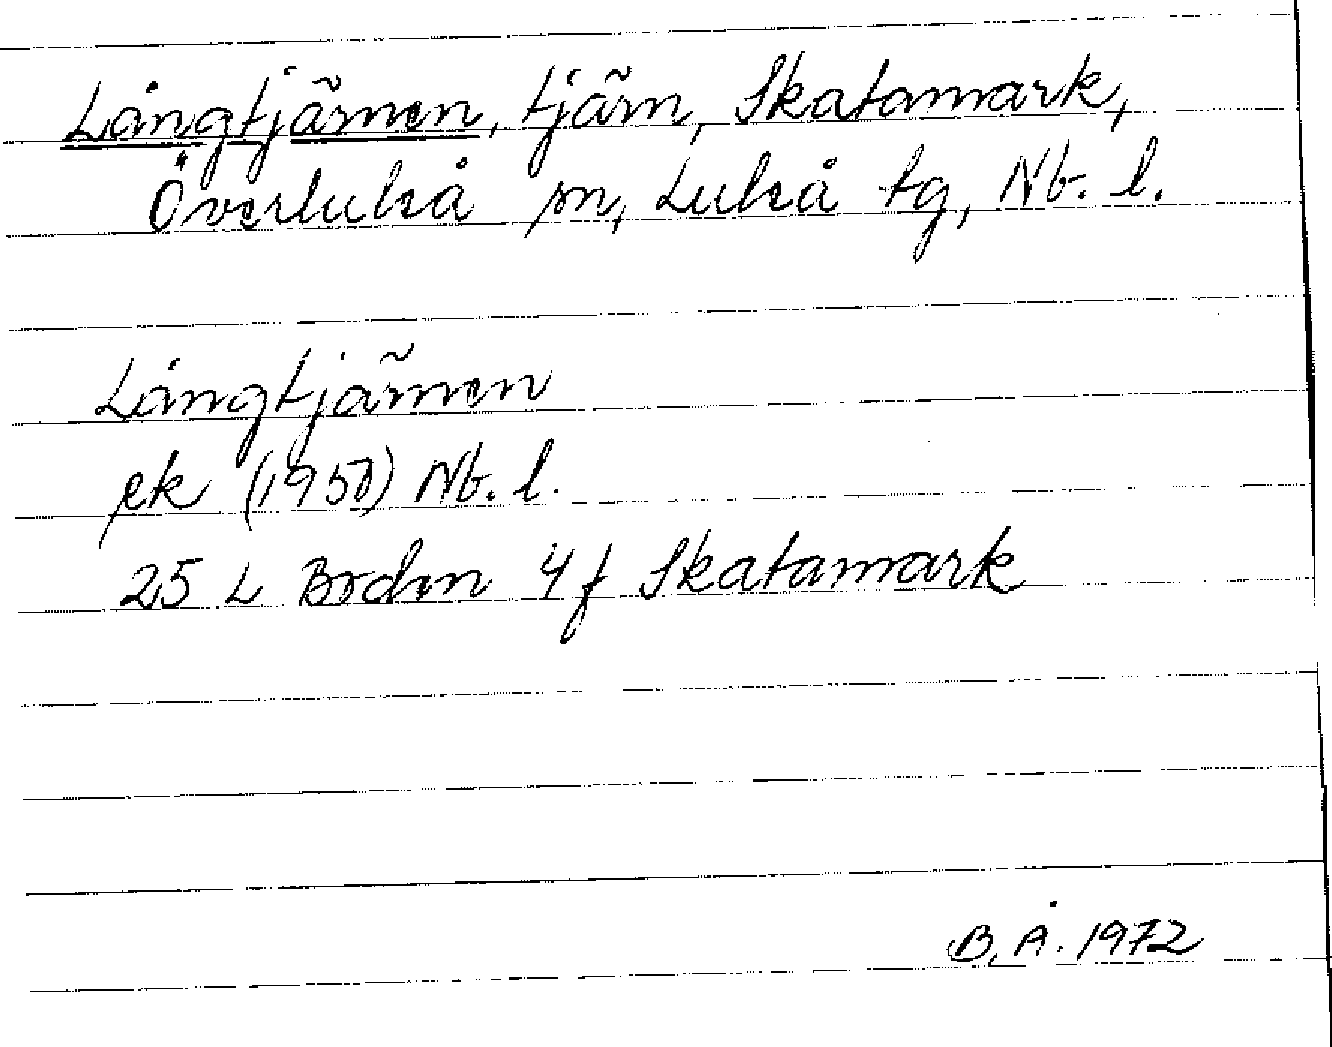 Långtjärnen, tjärn, Skatamark,
Överluleå sn, Luleå tg, Nb. l.
Långtjärnen
ek Nb. l.
25 L Boden 4f Skatamark
B. Å. 1972